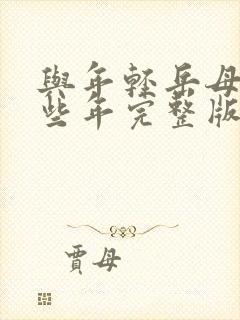 與年輕岳母
些年完整版
賈母